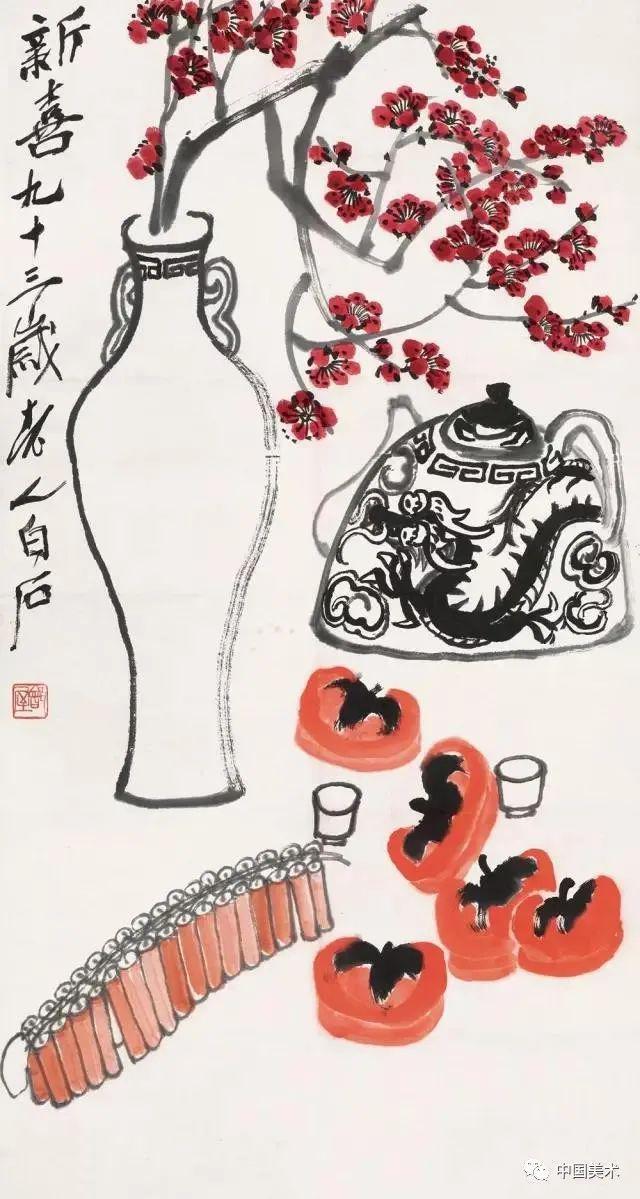 新喜九十三歲老人白石
中国美术